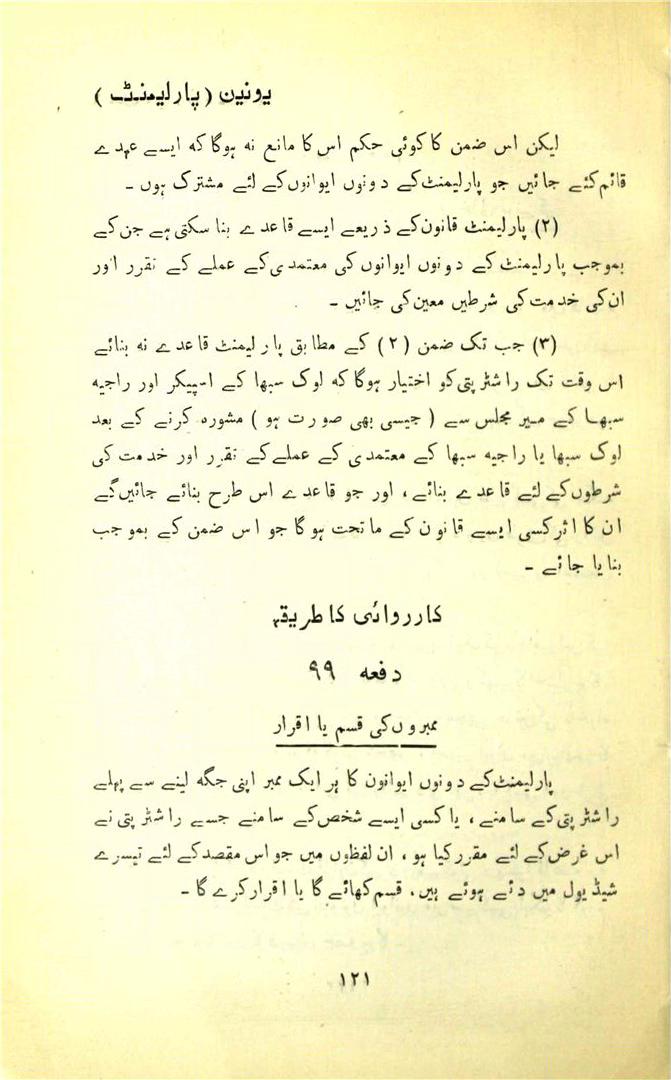 یونین (پارلیمنٹ)
لیکن اس ضمن کا کوئی حکم اس کا مانع نہ ہوگا کہ ایسے عہدے
قائم کئے جائیں جو پارلیمنٹ کے دونوں ایوانوں کے لئے مشترک ہوں ۔
(۲) پارلیمنٹ قانون کے ذریعے ایسے قاعدے بنا سکتی ہے جن کے
بموجب پارلیمنٹ کے دونوں ایوانوں کی معتمدی کے عملے کے تقرر اور
ان کی خدمت کی شرطیں معین کی جائیں ۔
(۳) جب تک ضمن (۲) کے مطابق پارلیمنٹ قاعدے نہ بنائے
اس وقت تک راشٹرپتی کو اختیار ہوگا کہ لوک سبھا کے اسپیکر اور راجیہ
سبھا کے میر مجلس سے (جیسی بھی صورت ہو) مشورہ کرنے کے بعد
لوک سبھا یا راجیہ سبھا کے معتمدی کے عملے کے تقرر اور خدمت کی
شرطوں کے لئے قاعدے بنائے ، اور جو قاعدے اس طرح بنائے جائیں گے
ان کا اثر کسی ایسے قانون کے ماتحت ہوگا جو اس ضمن کے بموجب
بنایا جائے ۔
کارروائی کا طریقہ
دفعہ ۹۹
ممبروں کی قسم یا اقرار
پارلیمنٹ کے دونوں ایوانون کا ہر ایک ممبر اپنی جگہ لینے سے پہلے
راشٹرپتی کے سامنے ، یا کسی ایسے شخص کے سامنے جسے راشٹرپتی نے
اس غرض کے لئے مقرر کیا ہو ، ان لفظوں میں جو اس مقصد کے لئے تیسرے
شیڈیول میں دئے ہوئے ہیں، قسم کھائے گا یا اقرار کرے گا ۔
۱۲۱